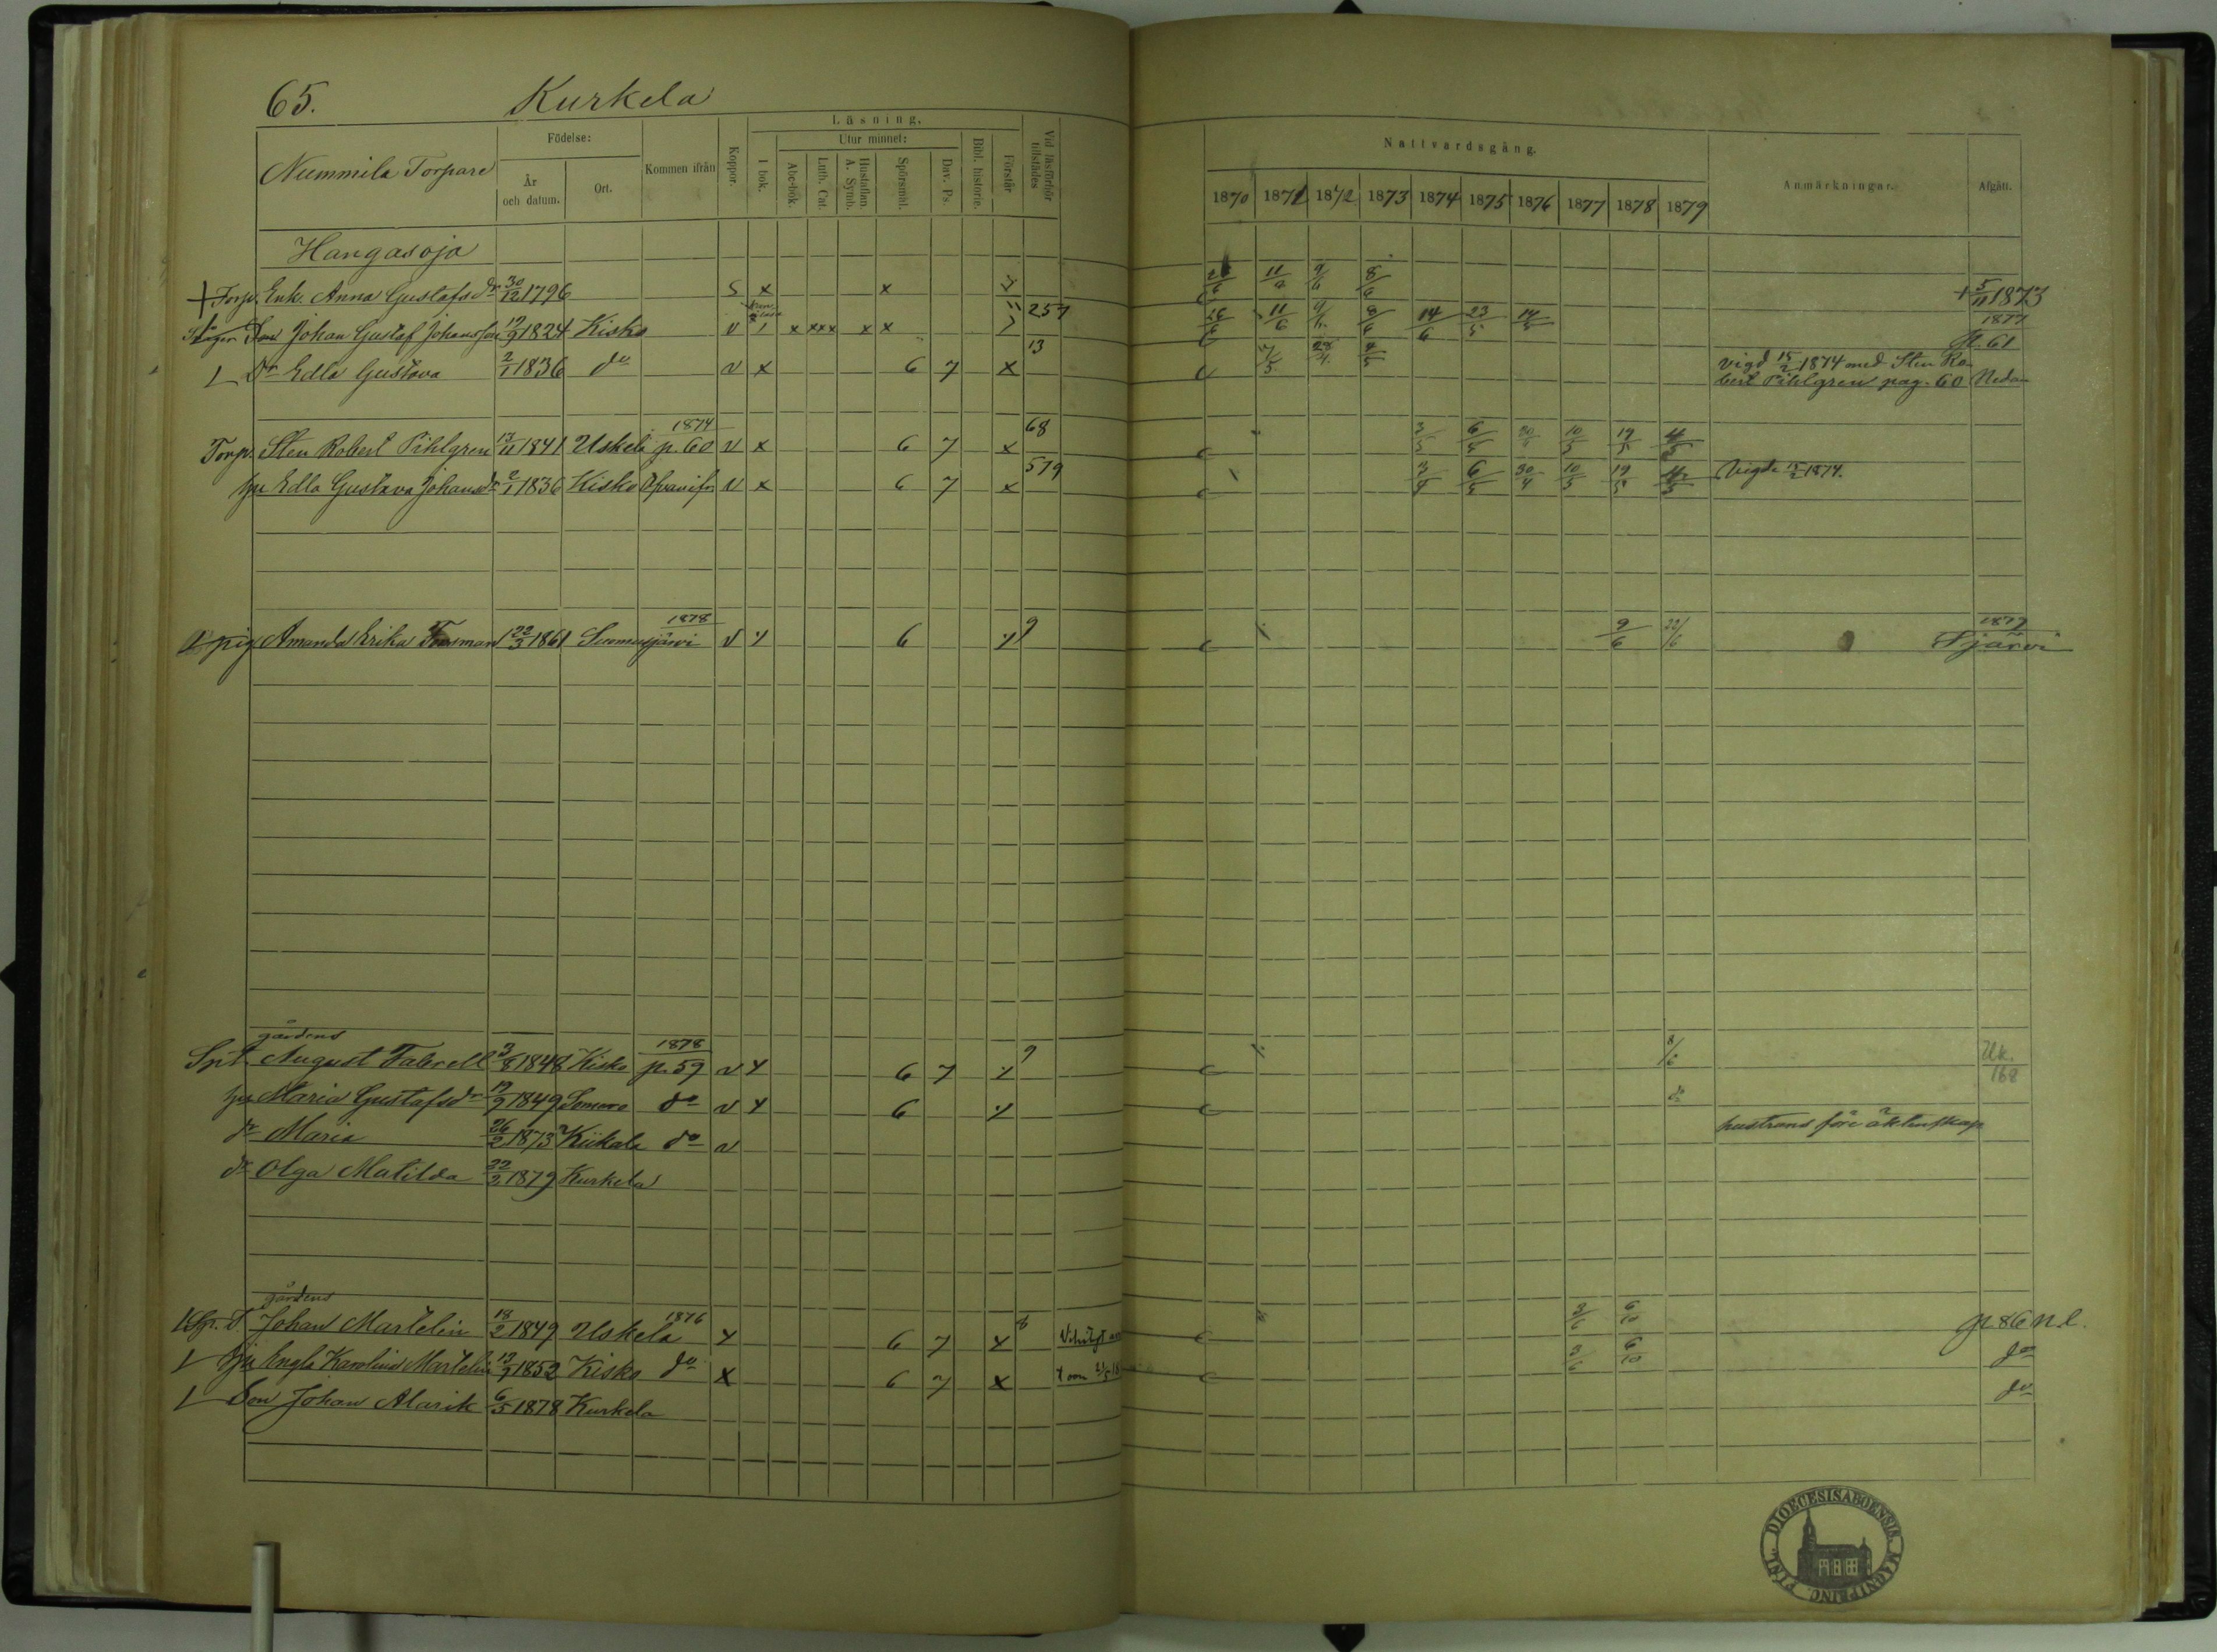 65. Kurkela
Nummila Torpare
Födelse:
År och datum.
Ort.
Kommen ifrån
Koppor.
Läsning.
I bok.
Utur minnet:
Abc-bok.
Luth. Cat.
Hustaflan. A. Symb.
Spörsmål.
Dav. Ps.
Bibl. historie.
Förstår
Vid läsförhör tillstädes
Nattvardsgång.
1870 1871 1872 1873 1874 1875 1876 1877 1878 1879
Anmärkningar.
Afgått.
Hangasoja
+ Torp. Enk. Anna Gustafsdr 30/12 1796 S x x 11/6 9/6 8/6 + 5/11 1873
Son Johan Gustaf Johansson 19/9 1824 Kisko v 1 x xxx x x 257 26/6 11/6 9/6 8/6 14/6 23/5 14/5 1877 p. 61
Dr Edla Gustava 2/1 1836 do v x 6 7 x 13 7/5 28/4 4/5 vigd 15/2 1874 med Sten Ro-
bert Pihlgren pag. 60 Nedan
Torp. Sten Robert Pihlgren 13/11 1841 Uskela 1874 p. 60 v x 6 7 x 68 3/5 6/5 30/4 10/5 19/5 4/5
hu Edla Gustava Johansdr 2/1 1836 Kisko Ofvanifr. v x 6 7 x 579 3/5 6/5 30/4 10/5 19/5 4/5 Vigde 15/2 1874.
pig Amanda Erika Forsman 22/3 1861 Suomusjärvi 1878 v 6 9 9/6 22/6 1879 Sjärvi
gårdens
Spt. August Fabrell 3/8 1848 Kisko 1878 p. 59 v 6 7 9 8/6 Uk. 168
hu Maria Gustafsdr 19/9 1849 Somero do v 6 do
dr Maria 26/2 1873 Kiikala do v hustruns före äktenskap
dr Olga Matilda 22/2 1879 Kurkela
gårdens
Johan Martelin 18/2 1849 Uskela 1876 6 7 x 6 3/6 6/10 p. 86 n.l.
hu Engla Karolina Martelin 12/9 1852 Kisko do x 6 7 x 3/6 6/10 do
Son Johan Alarik 6/5 1878 Kurkela do
FINL. DIOECESIS ABOENSIS MAGNI PRINC.